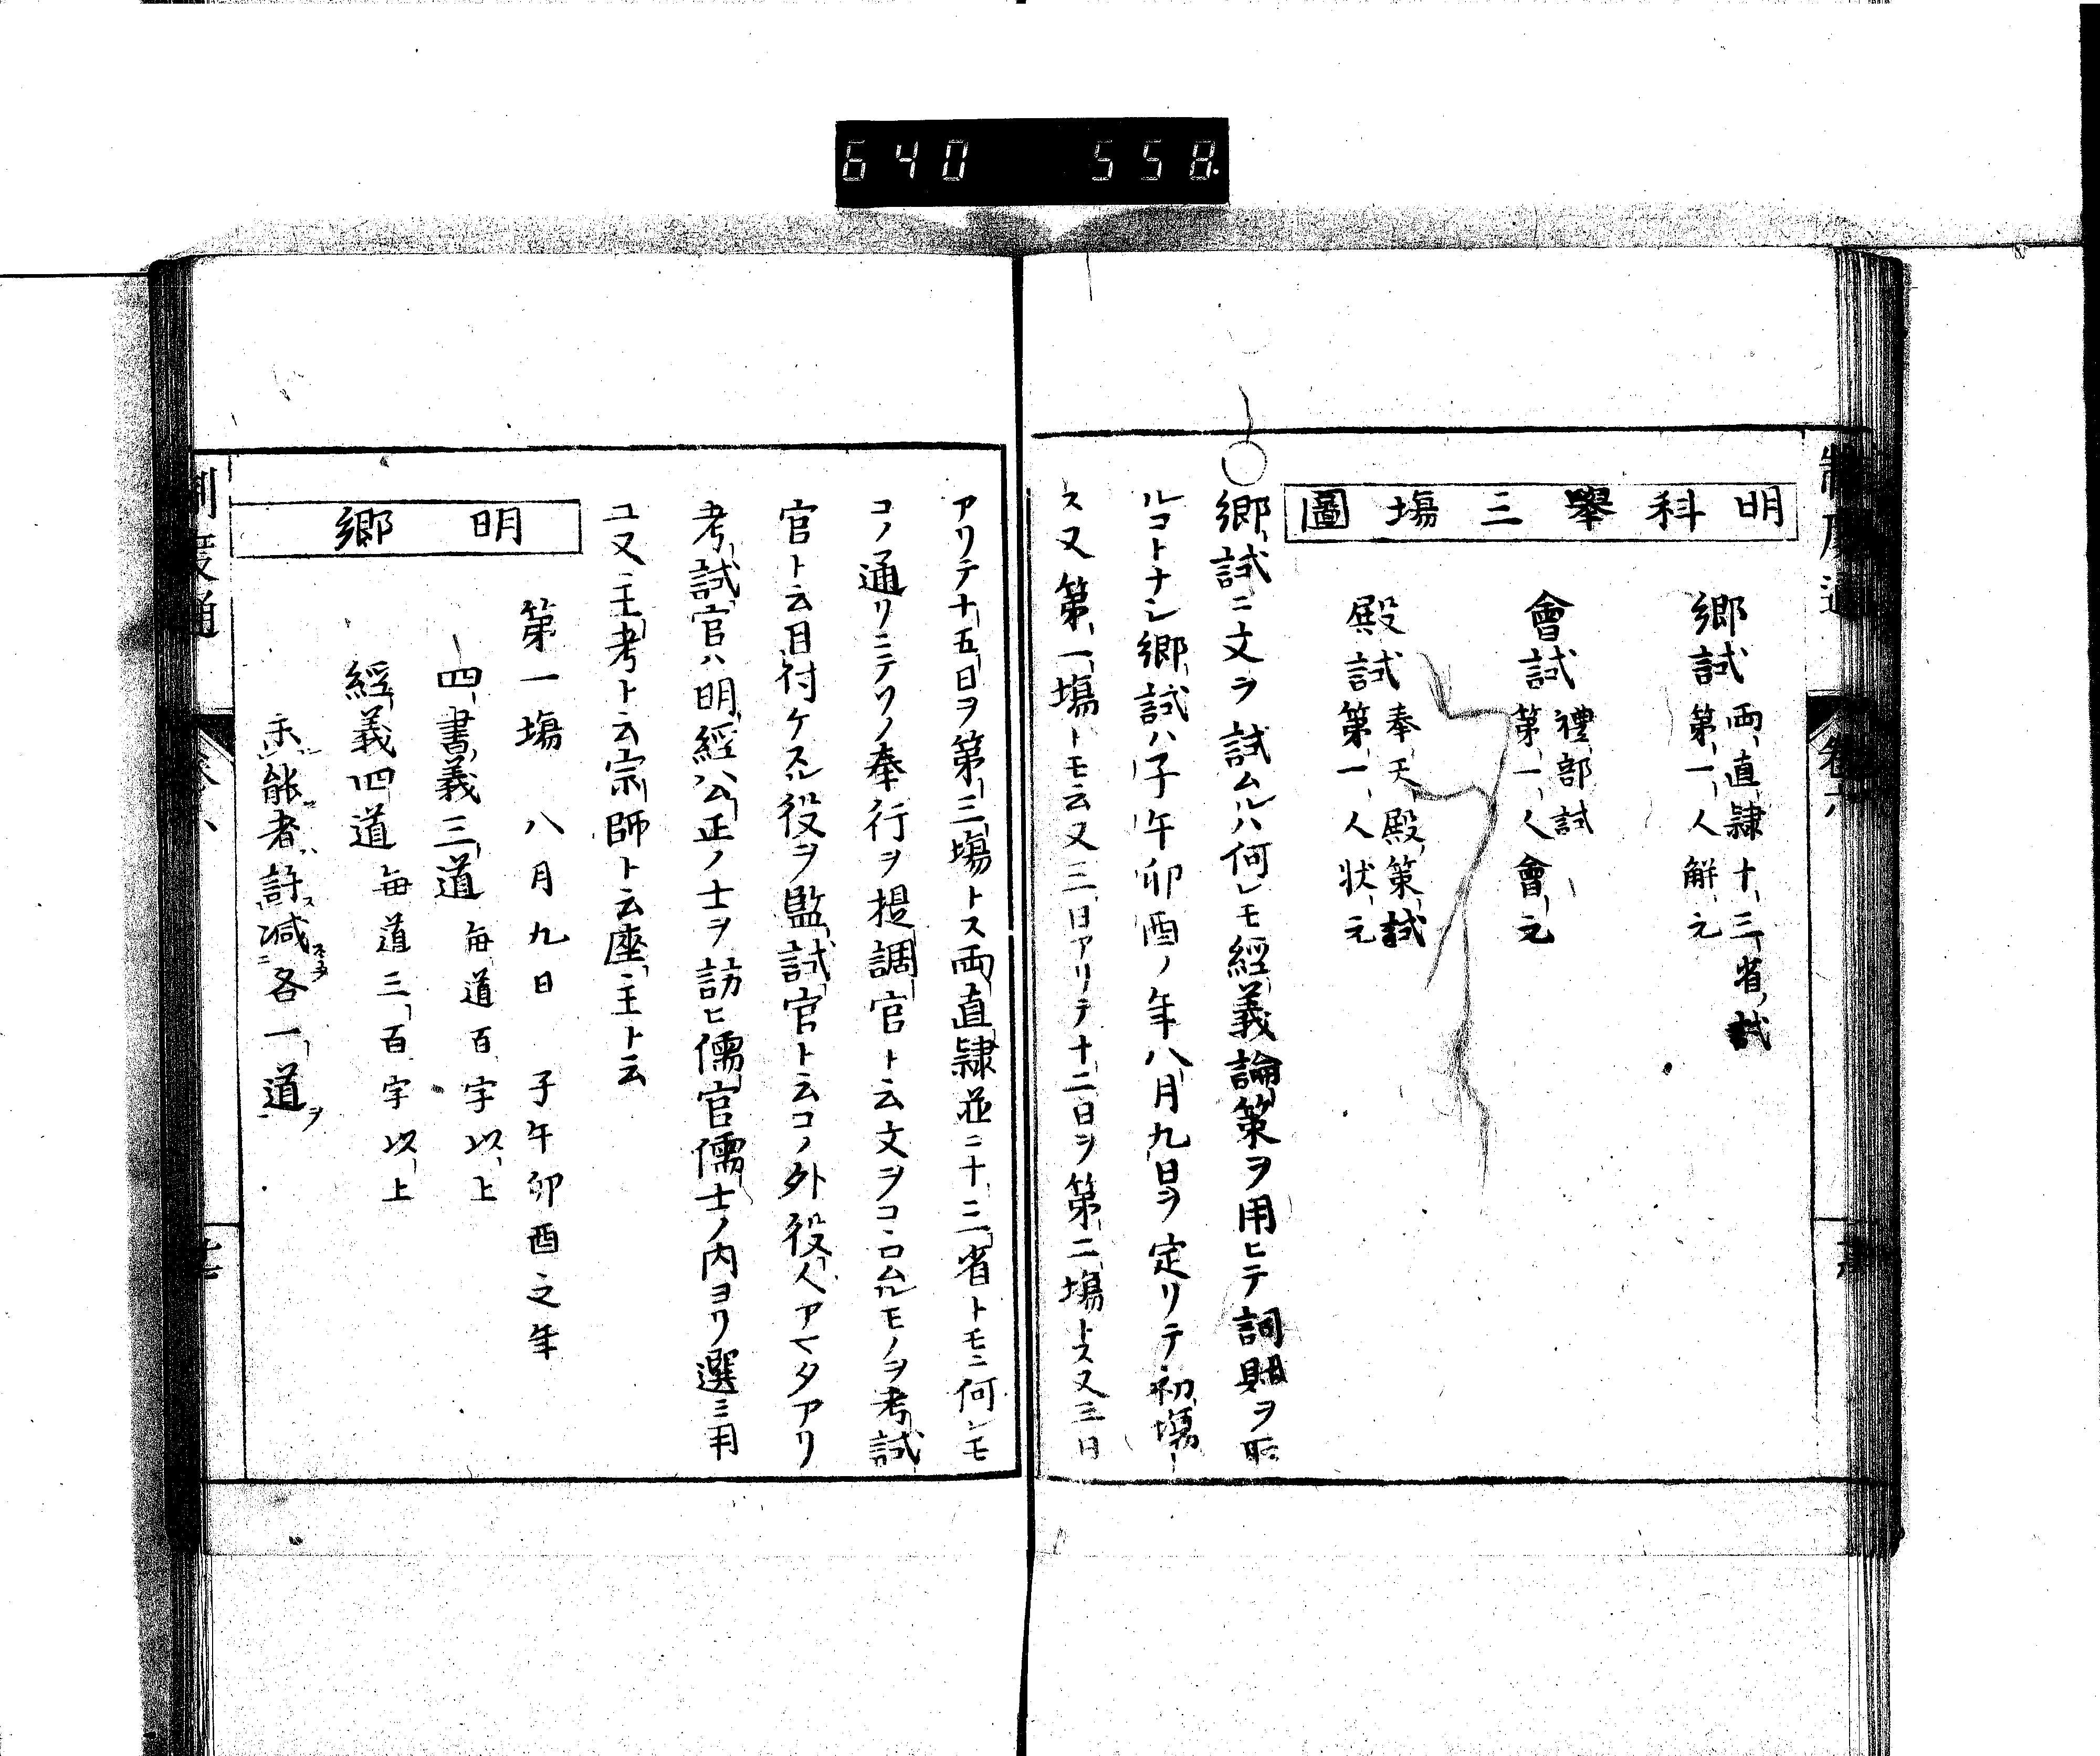 640 558
明科舉三場圖
鄉試 兩直隷十三省試
第一人解元
會試 禮部試
第一人會元
殿試 奉天殿策試
第一人狀元
○鄉試ニ文ヲ試ムルハ何レモ經義論策ヲ用ヒテ詞賦ヲ取
ルコトナシ鄉試ハ子午卯酉ノ年八月九日ヲ定リテ初塲ト
ス又第一塲トモ云又三日アリテ十二日ヲ第二塲トス又三日
アリテ十五日ヲ第三塲トス両直隷並ニ十三省トモニ何レモ
コノ通リニテソノ奉行ヲ提調官ト云文ヲコヽロムルモノヲ考試
官ト云目付ケスル役ヲ監試官ト云コノ外役人アマタアリ
考試官ハ明經公正ノ士ヲ訪ヒ儒官儒士ノ内ヨリ選ミ用
ユ又主考ト云宗師ト云座主ト云
明鄉
第一塲 八月九日 子午卯酉之年
四書義三道 每道百字以上
經義四道 每道三百字以上
未能者許減各一道ヲ
制度通 卷六